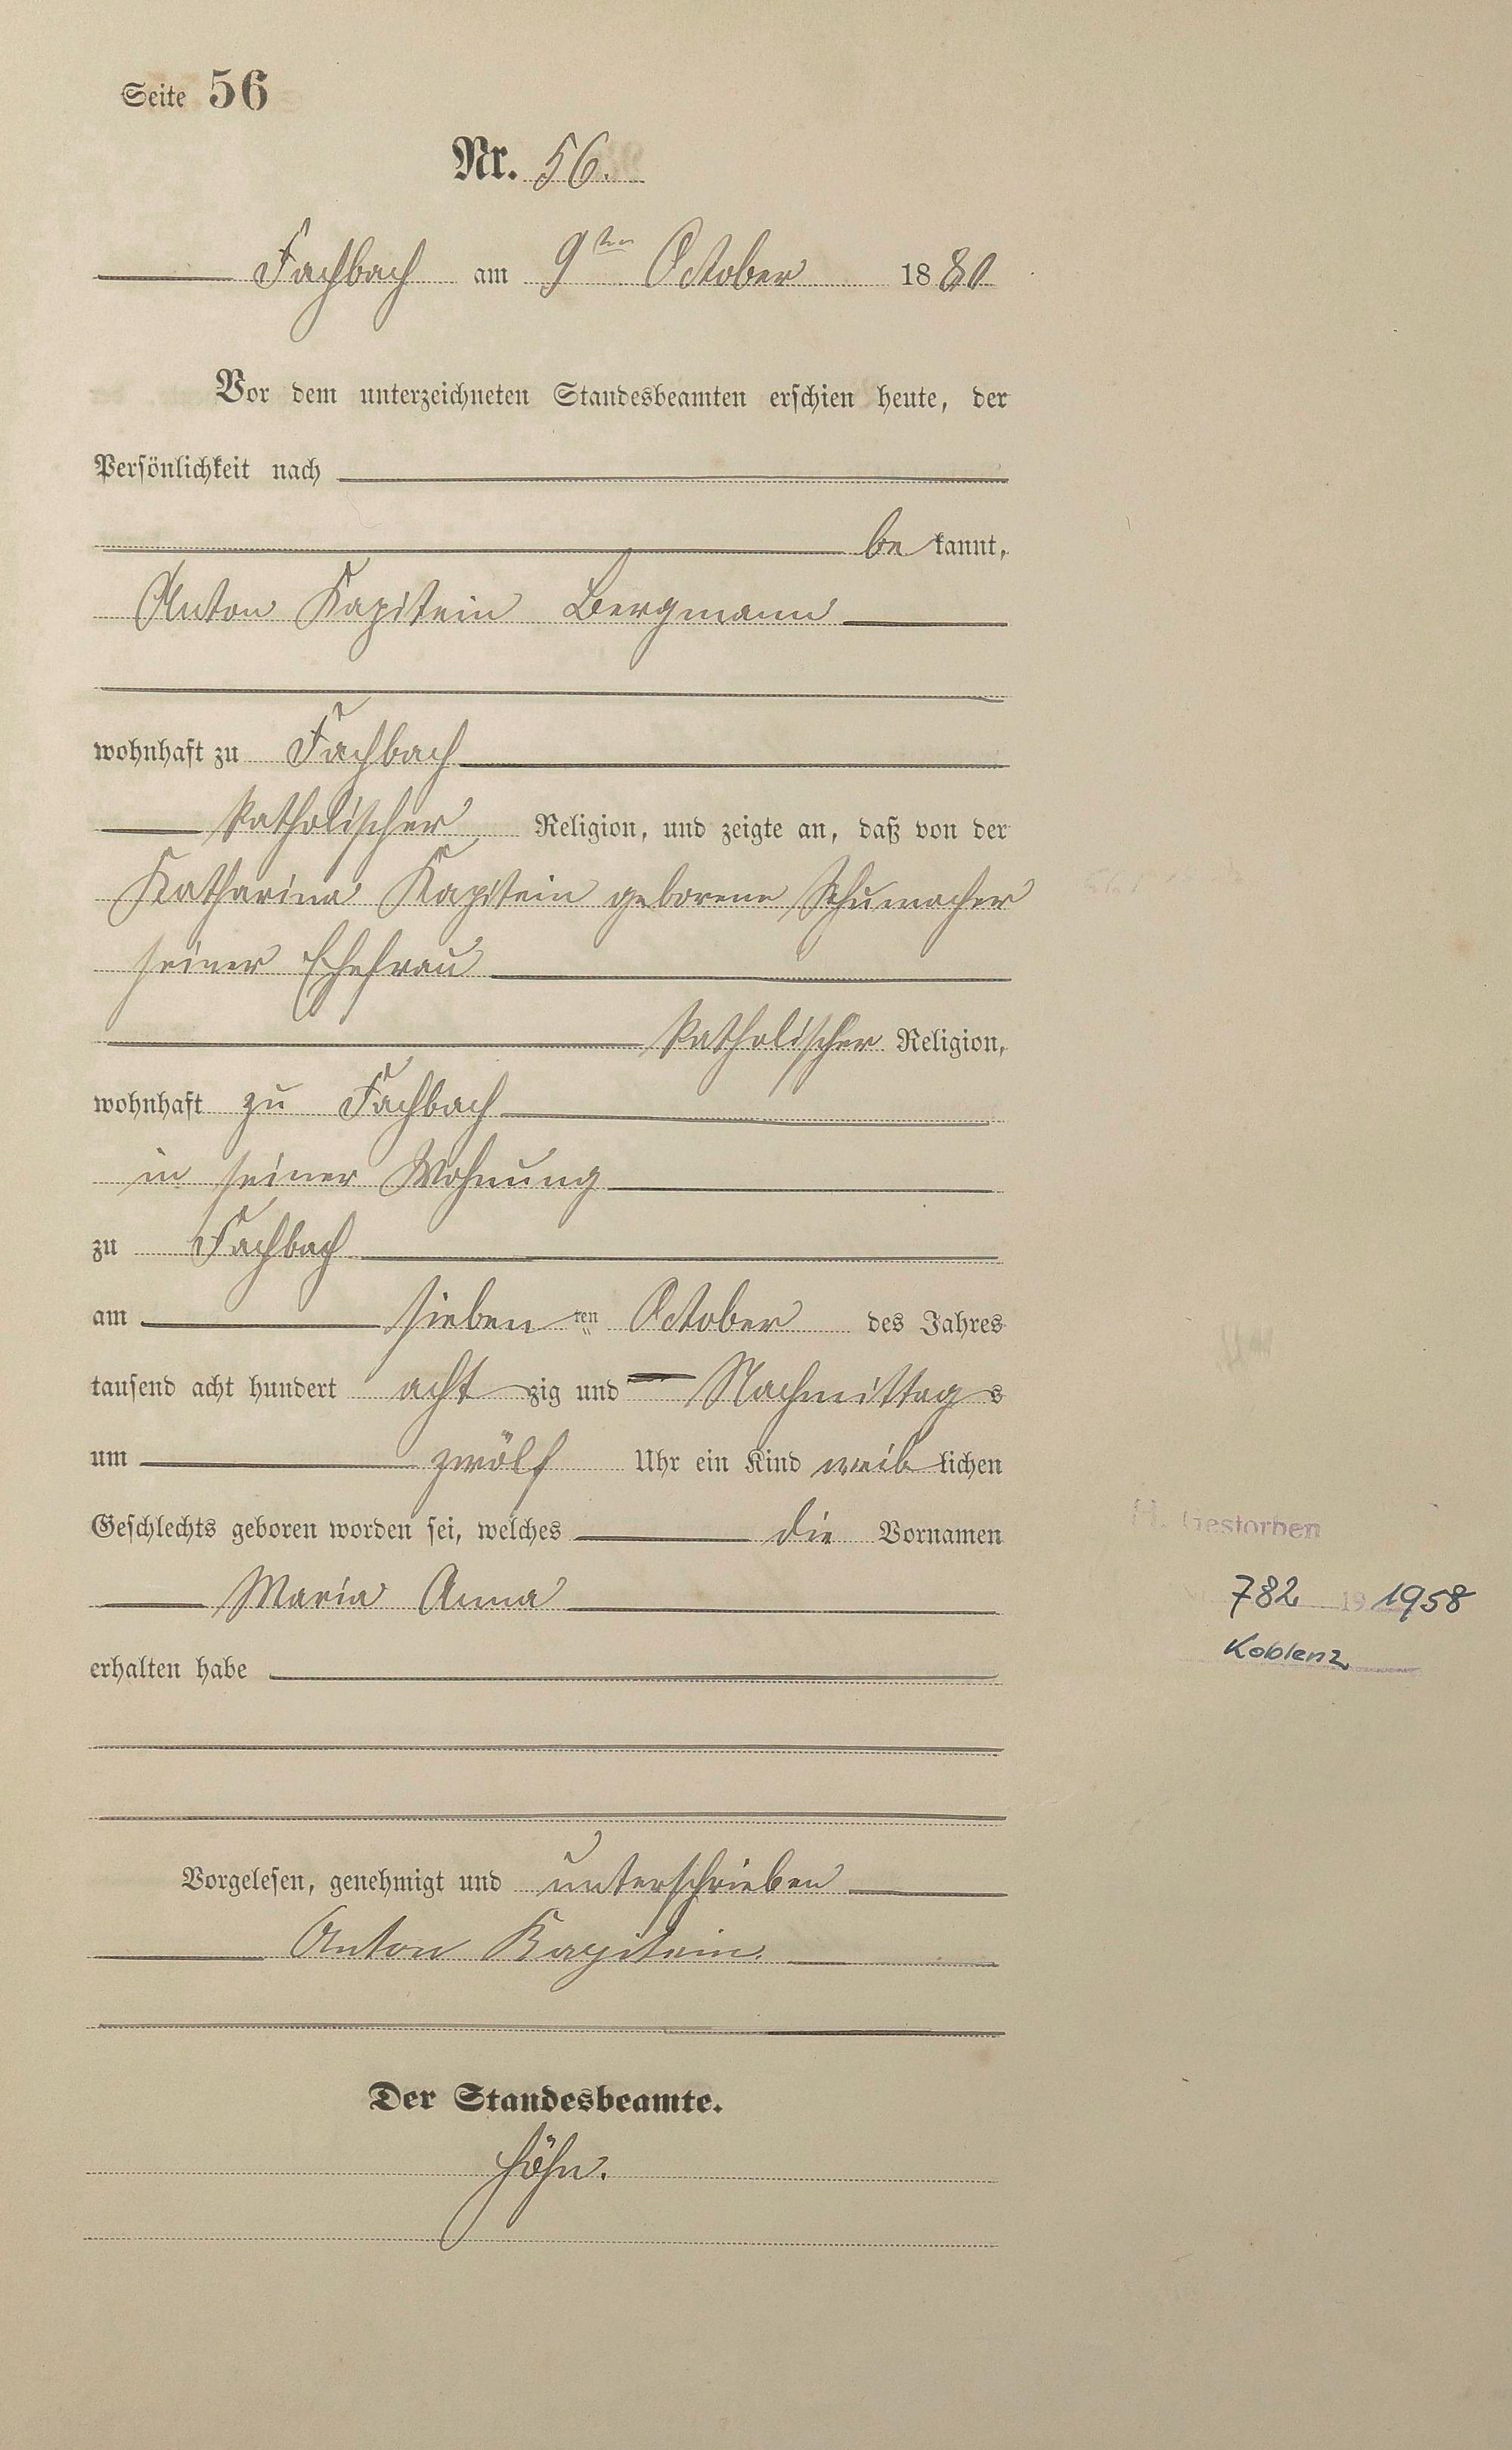 Seite 56
Nr. 56.
Fachbach am 9ten October 1880
Vor dem unterzeichneten Standesbeamten erschien heute, der
Persönlichkeit nach
bekannt,
Anton Kapitein Bergmann
wohnhaft zu Fachbach
katholischer Religion, und zeigte an, daß von der
Katharina Kapitein geborene Schumacher
seiner Ehefrau
katholischer Religion,
wohnhaft zu Fachbach
in seiner Wohnung
zu Fachbach
am siebenten October des Jahres
tausend acht hundert achtzig und Nachmittags
um zwölf Uhr ein Kind weiblichen
Geschlechts geboren worden sei, welches die Vornamen
Maria Anna
erhalten habe
Vorgelesen, genehmigt und unterschrieben
Anton Kapitein.
Der Standesbeamte.
Höhn.
Gestorben
782 19 1958
Koblenz